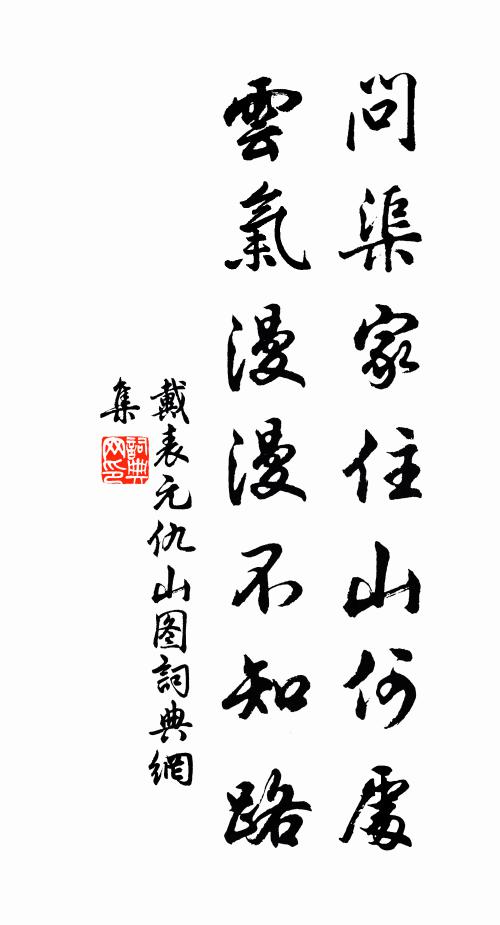 問渠家住山何處
雲氣漫漫不知路
戴表元仇山图詞典網
集
詞典网印